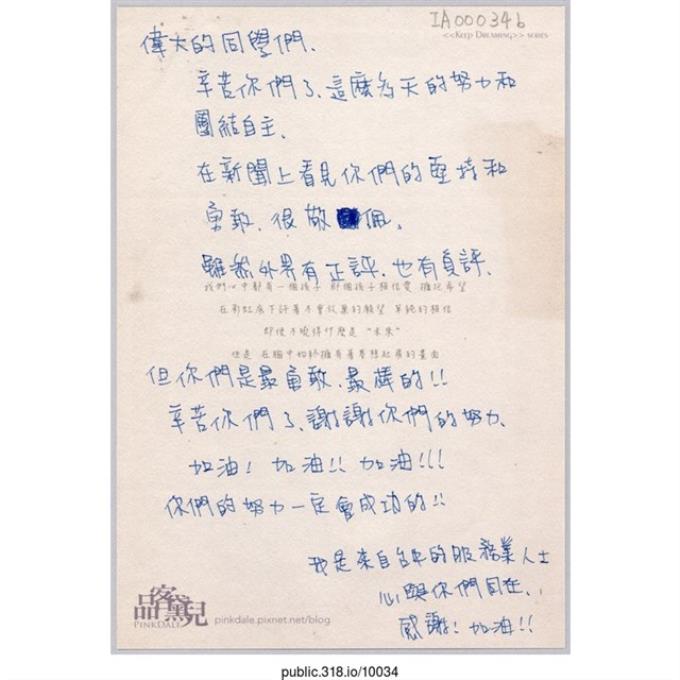 IA00034b
<<KEEP DREAMING>> SERIES
偉大的同學們、
辛苦你們了、這麼多天的努力和
團結自主、
在新聞上看見你們的堅持和
勇敢、很敬佩。
雖然外界有正評、也有負評、
我們心中都有一個孩子 那個孩子相信愛 擁抱希望
在彩虹底下許著不會放棄的願望 單純的相信
即使不曉得什麼是 "未來"
但是 在腦中始終擁有著夢想起飛的畫面
但你們是最勇敢、最棒的!!
辛苦你們了、謝謝你們的努力、
加油! 加油!! 加油!!!
你們的努力一定會成功的!!
我是來自台中的服務業人士
心與你們同在、
感謝! 加油!!
品客黛兒
PINKDALE
pinkdale.pixnet.net/blog
public.318.io/10034